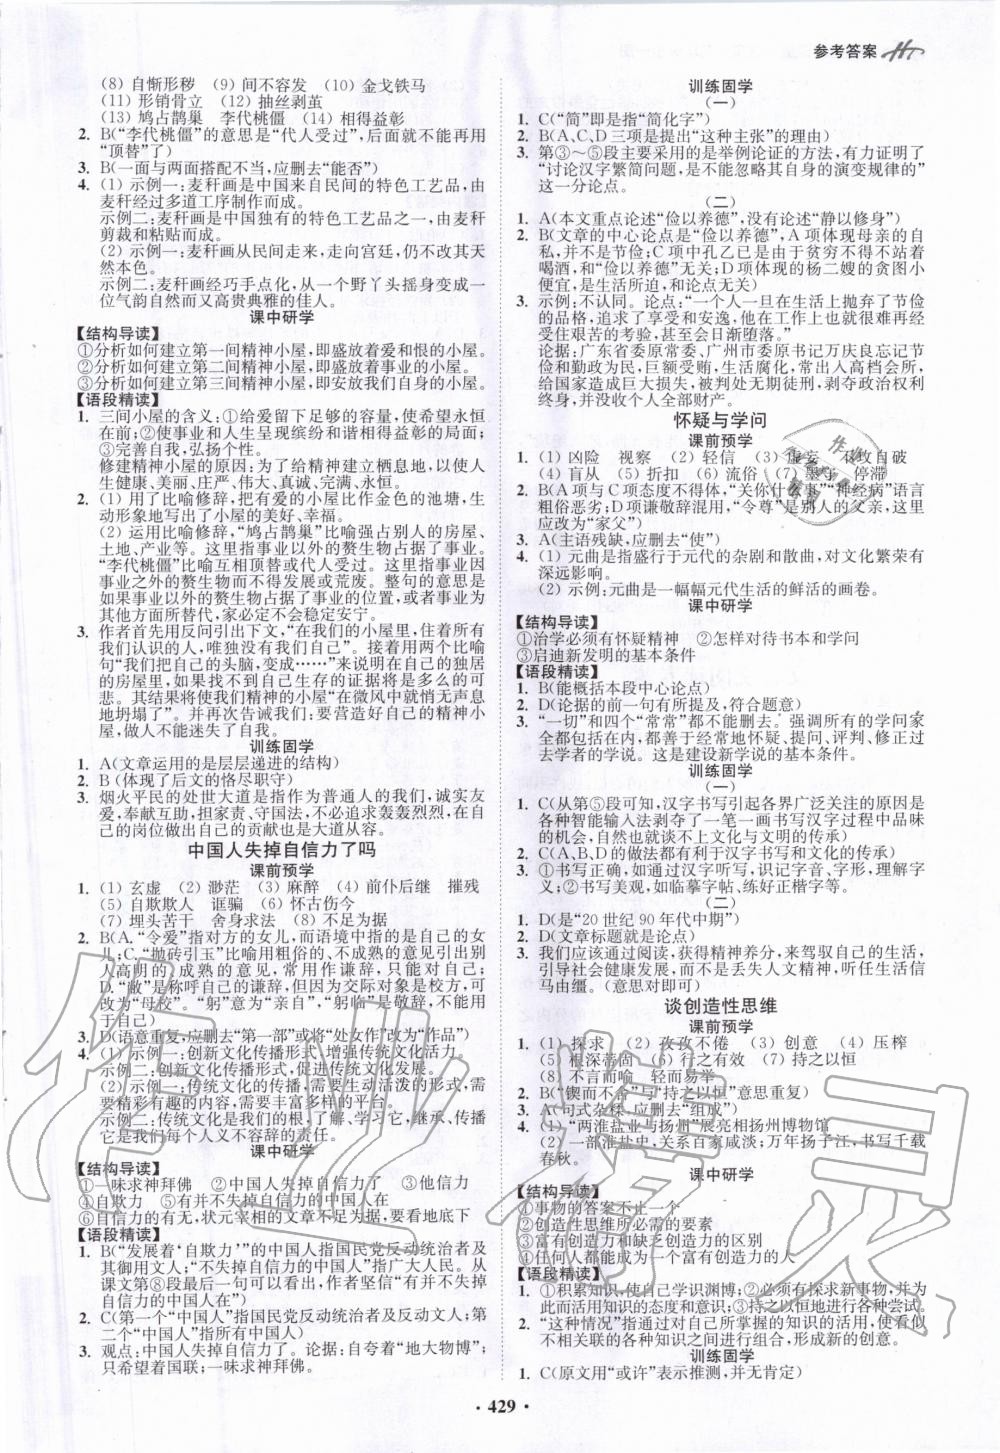 参考答案
(8) 自惭形秽　(9) 间不容发　(10) 金戈铁马
(11) 形销骨立　(12) 抽丝剥茧
(13) 鸠占鹊巢　李代桃僵　(14) 相得益彰
2. B(“李代桃僵”的意思是“代人受过”,后面就不能再用
“顶替”了)
3. B(一面与两面搭配不当,应删去“能否”)
4. (1) 示例一:麦秆画是中国来自民间的特色工艺品,由
麦秆经过多道工序制作而成。
示例二:麦秆画是中国独有的特色工艺品之一,由麦秆
剪裁和粘贴而成。
(2) 示例一:麦秆画从民间走来,走向宫廷,仍不改其天
然本色。
示例二:麦秆画经巧手点化,从一个野丫头摇身变成一
位气韵自然而又高贵典雅的佳人。
课中研学
【结构导读】
①分析如何建立第一间精神小屋,即盛放着爱和恨的小屋。
②分析如何建立第二间精神小屋,即盛放着事业的小屋。
③分析如何建立第三间精神小屋,即安放我们自身的小屋。
【语段精读】
1. 三间小屋的含义:①给爱留下足够的容量,使希望永恒
在前;②使事业和人生呈现缤纷和谐相得益彰的局面;
③完善自我,弘扬个性。
修建精神小屋的原因:为了给精神建立栖息地,以使人
生健康、美丽、庄严、伟大、富足、完满、永恒。
2. (1) 用了比喻修辞,把有爱的小屋比作金色的池塘,生
动形象地写出了小屋的美好、幸福。
(2) 运用比喻修辞,“鸠占鹊巢”比喻强占别人的房屋、
土地、产业等。这里指事业以外的赘生物占据了事业。
“李代桃僵”比喻互相顶替或代人受过。这里指事业因
事业之外的赘生物而不得发展或荒废。整句的意思是
如果事业以外的赘生物占据了事业的位置,或者事业
被其他方面所替代,家必定不会稳定安宁。
3. 作者首先用反问引出下文,“在我们的小屋里,住着所有
我们认识的人,唯独没有我们自己”。接着用两个比喻
句“我们把自己的头脑,变成……”来说明在自己的独居
的房屋里,如果找不到自己生存的证据将是多么的可
悲。其结果将使我们精神的小屋“在微风中就悄无声息
地坍塌了”。并再次告诫我们:要营造好自己的精神小
屋,做人不能迷失了自我。
训练固学
1. A(文章运用的是层层递进的结构)
2. B (体现了后文的恪尽职守)
3. 烟火平民的处世大道是指作为普通人的我们,诚实友
爱,奉献互助,担家责、守国法,不必追求轰轰烈烈,在自
己的岗位做出自己的贡献也是大道从容。
中国人失掉自信力了吗
课前预学
1. (1) 玄虚　(2) 渺茫　(3) 麻醉　(4) 前仆后继　摧残
(5) 自欺欺人　诓骗　(6) 怀古伤今
(7) 埋头苦干　舍身求法　(8) 不足为据
2. B(A.“令爱”指对方的女儿,而语境中指的是自己的女
儿;C.“抛砖引玉”比喻用粗俗的、不成熟的意见引出别
人高明的、成熟的意见,常用作谦辞,只能对自己用;
D.“敝”是称呼自己的谦辞,但因为交际对象是校方,可
改为“母校”。“躬”意为“亲自”,“躬临”是敬辞,不能用
于自己)
3. D(语意重复,应删去“第一部”或将“处女作”改为“作品”)
4. (1) 示例一:创新文化传播形式,增强传统文化活力。
示例二:创新文化传播形式,促进传统文化发展。
(2) 示例一:传统文化的发展需要生动活泼的形式,需
要精彩有趣的内容,需要丰富多样的传播手段。
示例二:传统文化是我们的根,了解它,学习它,继承、传播
它是我们每个人义不容辞的责任。
课中研学
【结构导读】
①一味求神拜佛　②中国人失掉自信力了　③他信力
④自欺力　⑤有并不失掉自信力的中国人在
⑥自信力的有无,状元宰相的文章不足为据,要自己去看地底下
【语段精读】
1. B(“发展着‘自欺力’”的中国人指国民党反动统治者及
其御用文人;“不失掉自信力的中国人”指广大人民。从
课文第⑧段最后一句可以看出,作者坚信“有并不失掉
自信力的中国人在”)
2. C(第一个“中国人”指国民党反动统治者及反动文人;第
二个“中国人”指所有中国人)
3. 观点:中国人失掉自信力了。论据:自夸着“地大物博”;
只希望着国联;一味求神拜佛。
训练固学
(一)
1. C(“简”即是指“简化字”)
2. B(A、C、D三项是提出“这种主张”的理由)
3. 第③～⑤段主要采用的是举例论证的方法,有力证明了
“讨论汉字繁简问题,是不能忽略其自身的演变规律的”
这一分论点。
(二)
1. A(本文重点论述“俭以养德”,没有论述“静以修身”)
2. B(文章的中心论点是“俭以养德”,A项体现母亲的自
私,并不是节俭;C项中孔乙己是由于贫穷不得不站着
喝酒,和“俭以养德”无关;D项体现的杨二嫂的贪图小
便宜,是生活所迫,和论点无关)
3. 示例:不认同。论点:“一个人一旦在生活上抛弃了节俭
的品格,追求了享受和安逸,他在工作上也就很难经受
住艰苦的考验,甚至会日渐堕落。”
论据:广东省委原常委、广州市委原书记万庆良忘记节
俭和勤政为民,巨额受贿,生活腐化,常出入高档会所,
给国家造成巨大损失,被判处无期徒刑,剥夺政治权利
终身,并没收个人全部财产。
怀疑与学问
课前预学
1. (1) 凶险　视察　(2) 轻信　(3) 虚妄　不攻自破
(4) 盲从　(5) 折扣　(6) 流俗　(7) 墨守　停滞
2. B(A项与C项态度不得体,“关你什么事”“神经病”语言
粗俗恶劣;D项谦敬辞混用,“令尊”是别人的父亲,这里
应改为“家父”)
3. A(主语残缺,应删去“使”)
4. (1) 元曲是指盛行于元代的杂剧和散曲,对文化繁荣有
深远影响。
(2) 示例:元曲是一幅幅元代生活的鲜活的画卷。
课中研学
【结构导读】
①治学必须有怀疑精神　②怎样对待书本和学问
③启迪新发明的基本条件
【语段精读】
1. B(能概括本段中心论点)
2. D(论据的前一句有所提及,符合题意)
3. “一切”和四个“常常”都不能删去。强调所有的学问家
全都包括在内,都善于经常地怀疑、提问、评判、修正过
去学者的学说。这是建设新学说的基本条件。
训练固学
(一)
1. C(从第⑤段可知,汉字书写引起各界广泛关注的原因是
各种智能输入法剥夺了一笔一画书写汉字过程中品味
的机会,自然也就谈不上文化与文明的传承)
2. C(A、B、D的做法都有利于汉字书写和文化的传承)
3. ①书写正确,如通过汉字听写,识记字音、字形,理解字
义。②书写美观,如临摹字帖、练好正楷字等。
(二)
1. D(是“20世纪90年代中期”)
2. D(文章标题就是论点)
3. 我们应该通过阅读,获得精神养分,来驾驭自己的生活,
引导社会健康发展,而不是丢失人文精神,听任生活信
马由缰。(意思对即可)
谈创造性思维
课前预学
1. (1) 探求　(2) 孜孜不倦　(3) 创意　(4) 压榨
(5) 根深蒂固　(6) 行之有效　(7) 持之以恒
(8) 不言而喻　轻而易举
2. B(“锲而不舍”与“持之以恒”意思重复)
3. A(句式杂糅,应删去“组成”)
4. (1)“两淮盐业与扬州”展亮相扬州博物馆
(2) 一部淮盐史,关系百家咸淡;万年扬子江,书写千载
春秋。
课中研学
【结构导读】
①事物的答案不止一个
②创造性思维所必需的要素
③富有创造力和缺乏创造力的区别
④任何人都能成为一个富有创造力的人
【语段精读】
1. ①积累知识,使自己学识渊博;②必须有探求新事物,并为
此而活用知识的态度和意识;③持之以恒地进行各种尝试。
2. “这种情况”指通过对自己所掌握的知识的活用,使看似
不相关联的各种知识之间进行组合,形成新的创意。
训练固学
1. C(原文用“或许”表示推测,并无肯定)
· 429 ·
作业精灵